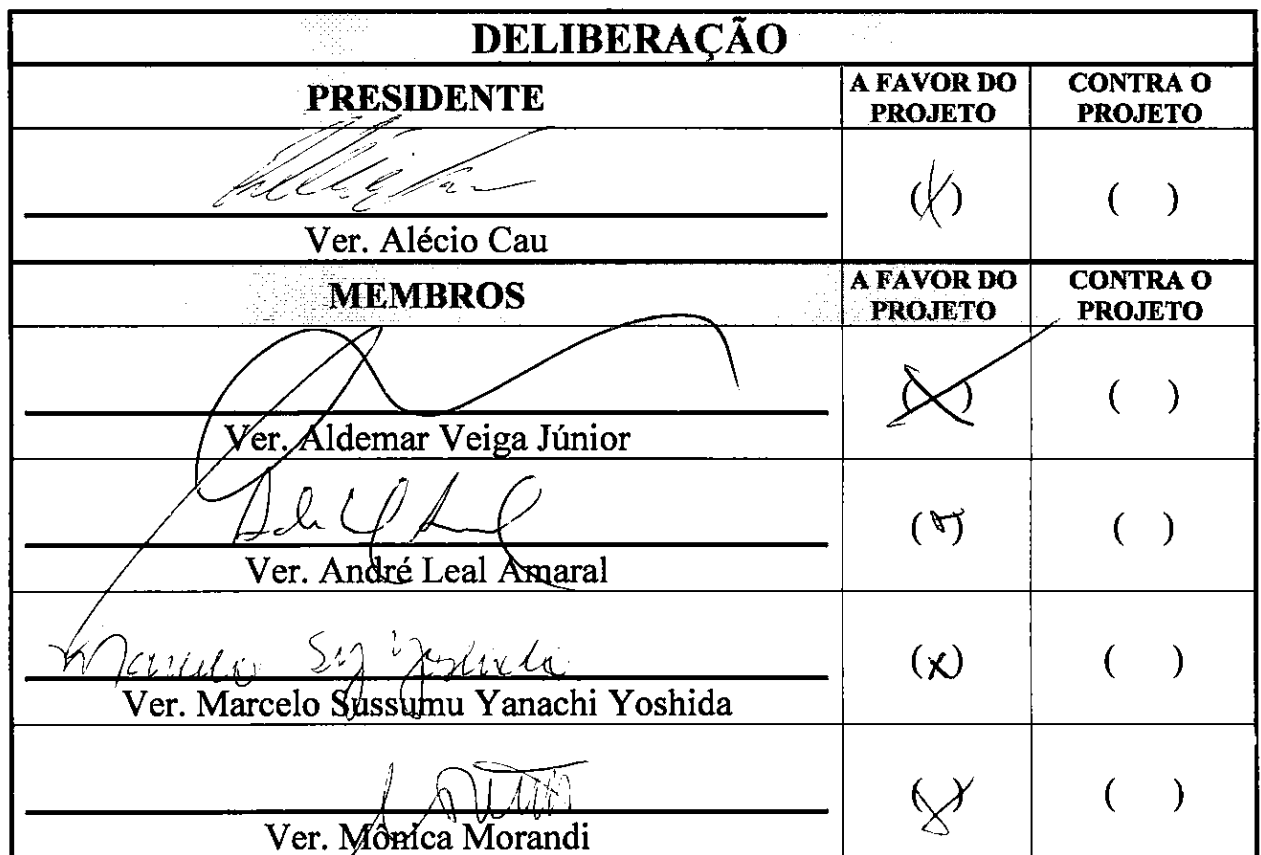 DELIBERAÇÃO
PRESIDENTE
A FAVOR DO PROJETO
CONTRA O PROJETO
Ver. Alécio Cau
(X)
( )
MEMBROS
A FAVOR DO PROJETO
CONTRA O PROJETO
Ver. Aldemar Veiga Júnior
(X)
( )
Ver. André Leal Amaral
( )
( )
Marcelo
Yoshida
Ver. Marcelo Sussumu Yanachi Yoshida
(x)
( )
Ver. Mônica Morandi
(X)
( )